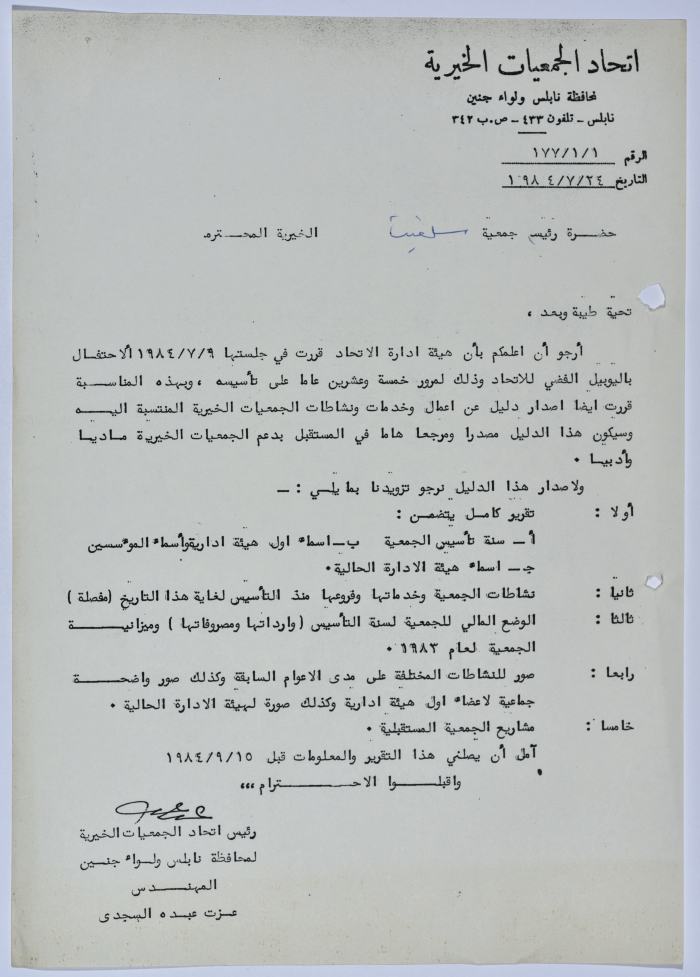 اتحاد الجمعيات الخيرية
محافظة نابلس ولواء جنين
نابلس - تلفون ٤٣٣ - ص.ب ٣٤٢
الرقم ١٧٧/١/١
التاريخ ١٩٨٤/٧/٢٤
حضرة رئيس جمعية سلفيت الخيرية المحترم
تحية طيبة وبعد ،
أرجو أن اعلمكم بأن هيئة ادارة الاتحاد قررت في جلستها ١٩٨٤/٧/٩ الاحتفال
باليوبيل الفضي للاتحاد وذلك لمرور خمسة وعشرين عاما على تأسيسه ، وبهذه المناسبة
قررت ايضا اصدار دليل عن اعمال وخدمات ونشاطات الجمعيات الخيرية المنتسبة اليه
وسيكون هذا الدليل مصدرا ومرجعا هاما في المستقبل بدعم الجمعيات الخيرية ماديا
وأدبيا .
ولاصدار هذا الدليل نرجو تزويدنا بما يلي : -
أولا : تقرير كامل يتضمن :
أ - سنة تأسيس الجمعية ب - اسماء اول هيئة ادارية وأسماء المؤسسين
ج - اسماء هيئة الادارة الحالية .
ثانيا : نشاطات الجمعية وخدماتها وفروعها منذ التأسيس لغاية هذا التاريخ (مفصلة )
ثالثا : الوضع المالي للجمعية لسنة التأسيس (وارداتها ومصروفاتها ) وميزانية
الجمعية لعام ١٩٨٣ .
رابعا : صور للنشاطات المختلفة على مدى الاعوام السابقة وكذلك صور واضحة
جماعية لاعضاء اول هيئة ادارية وكذلك صورة لهيئة الادارة الحالية .
خامسا : مشاريع الجمعية المستقبلية .
آمل أن يصلني هذا التقرير والمعلومات قبل ١٩٨٤/٩/١٥
واقبلوا الاحترام ،،،
رئيس اتحاد الجمعيات الخيرية
لمحافظة نابلس ولواء جنين
المهندس
عزت عبده السجدى